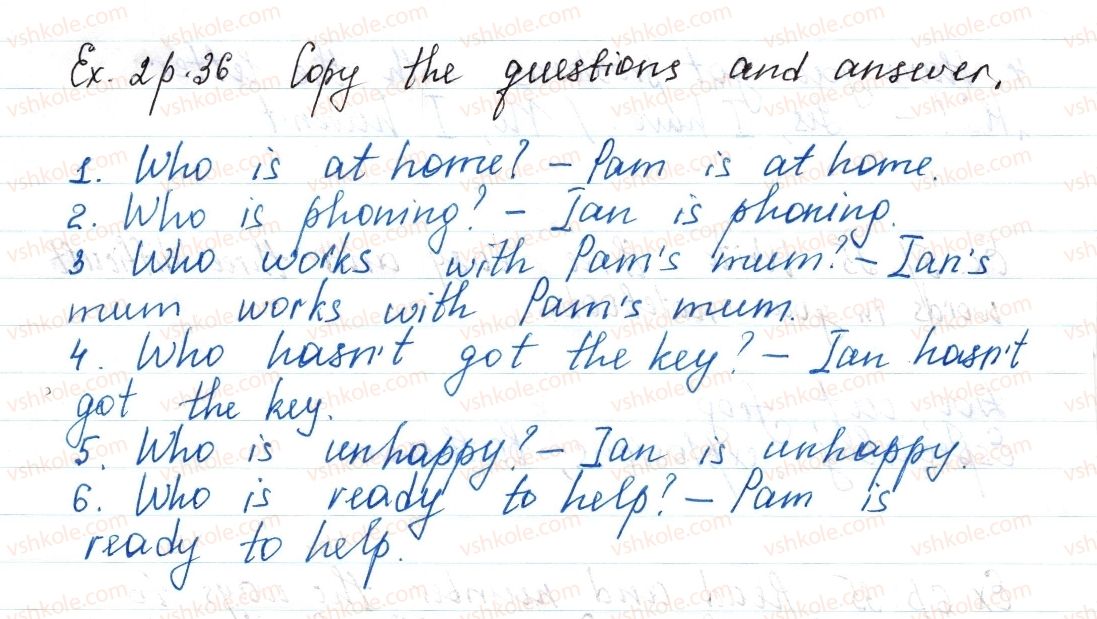 Ex. 2 p.36 Copy the questions and answer.
1. Who is at home? – Pam is at home.
2. Who is phoning? – Ian is phoning.
3 Who works with Pam's mum? – Ian's
mum works with Pam's mum.
4. Who hasn't got the key? – Ian hasn't
got the key.
5. Who is unhappy? – Ian is unhappy.
6. Who is ready to help? – Pam is
ready to help.
vshkole.com